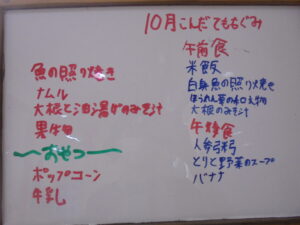 10月こんだてももぐみ
魚の照り焼き
ナムル
大根と油湯げのみそ汁
果物
〜おやつ〜
ポップコーン
牛乳
午前食
米飯
白身魚の照り焼き
ほうれん草の和え物
大根のみそ汁
午後食
人参粥
とりと野菜のスープ
バナナ